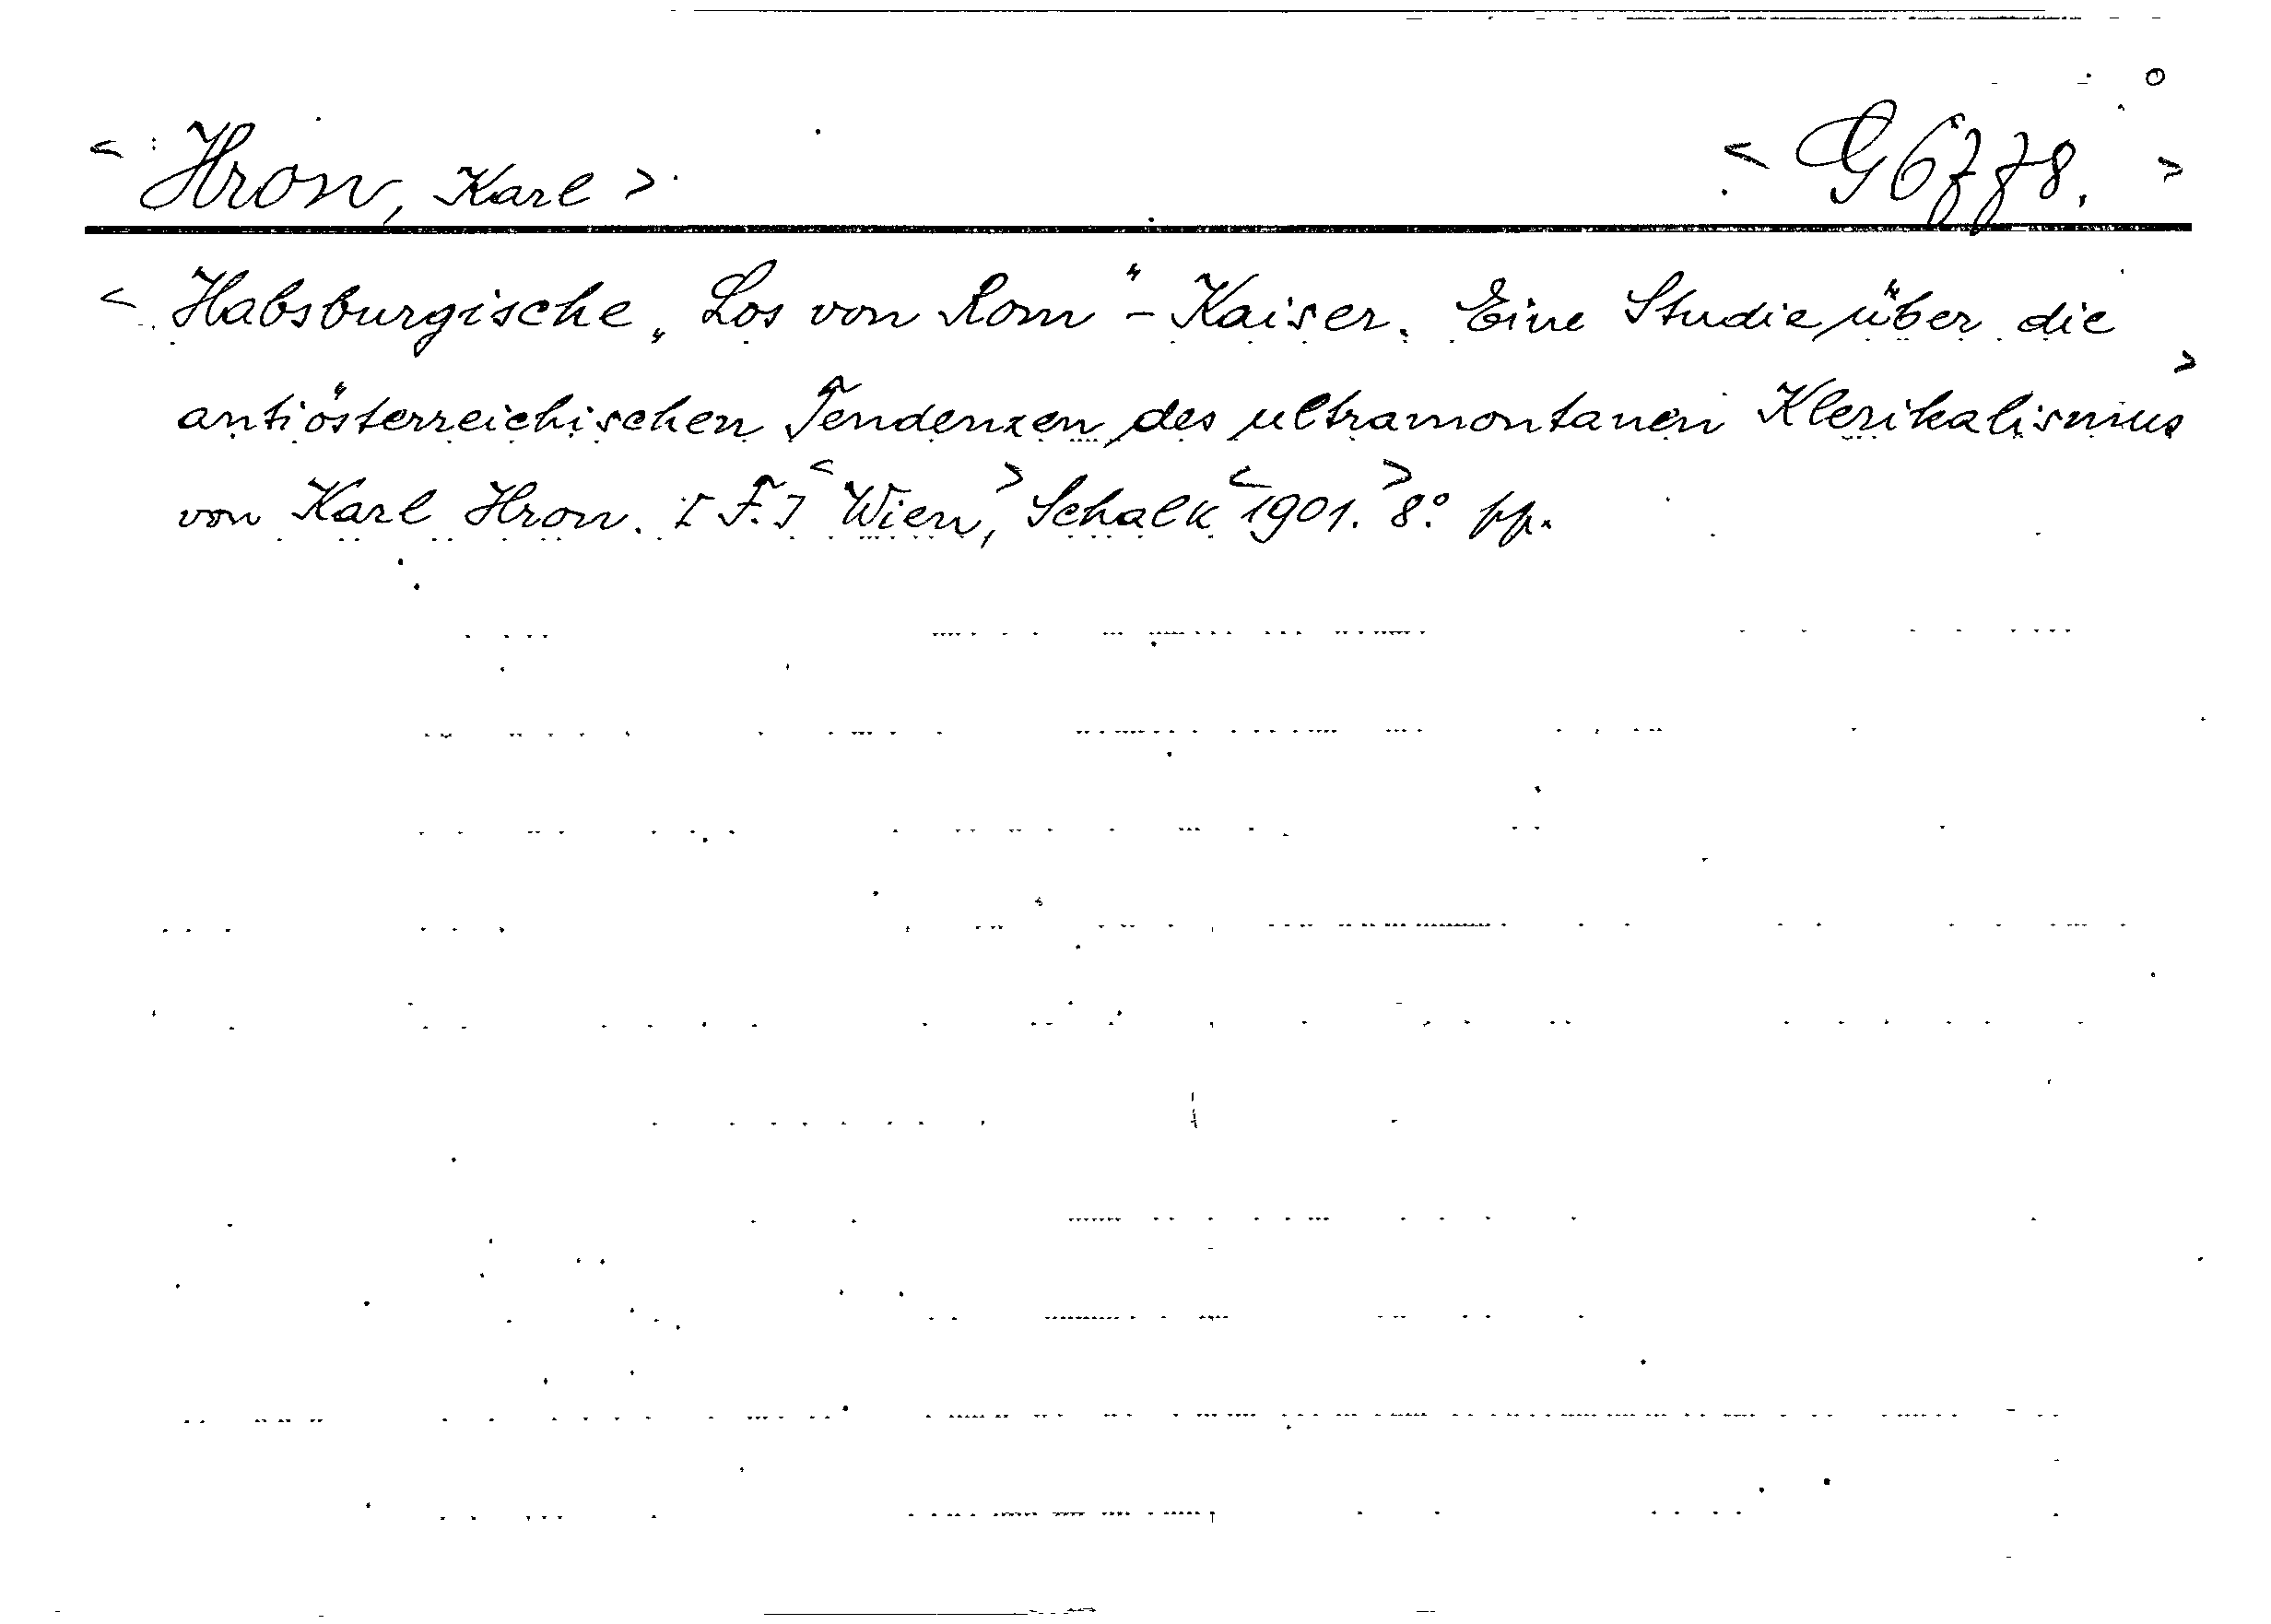 < Hron, Karl >
< G 6778. >
< Habsburgische „Los von Rom“-Kaiser. Eine Studie über die
antiösterreichischen Tendenzen des ultramontanen Klerikalismus >
von Karl Hron. [F.] < Wien, > Schalk < 1901. > 8° pp.